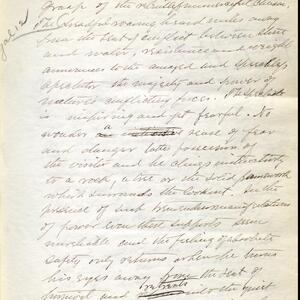 Grasp of the
The dreadful roaring heard miles away
from the seat of conflict between stone
and water, resistance and weight
announces to the amazed and
spectator the majesty and power of
nature's conflicting forces. The
is inspiring and yet fearful. No
wonder a sense of fear
and danger takes possession of
the visitor and he clings instinctively
to a rock, a tree or the solid framework
which surrounds the torrent. In the
presence of such tremendous manifestations
of power even these supports seem
unreliable and the feeling of absolute
safety only returns when he turns
his eyes away from the seat of
turmoil and retreats into the quiet